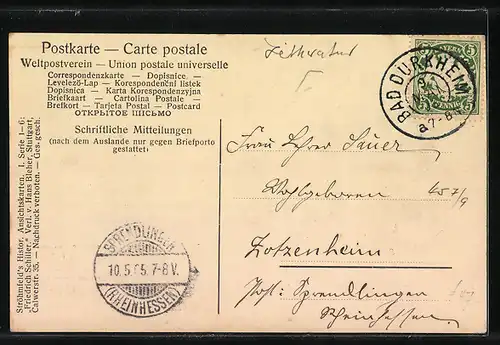 Postkarte — Carte postale
Weltpostverein — Union postale universelle
Correspondenzkarte — Dopisnice —
Levelező-Lap — Korespondenční listek
Dopisnica — Karta Korespondenzyjna
Briefkaart — Cartolina Postale —
Brefkort — Tarjeta Postal — Postcard
ОТКРЫТОЕ ПИСЬМО
Schriftliche Mitteilungen
(nach dem Auslande nur gegen Briefporto
gestattet)
BAYERN
5
PFENNIG
BAD DÜRKHEIM
a7-8
Frau Lehrer Sauer
Wohlgeboren
Zotzenheim
Post: Sprendlingen
Rheinhessen
SPRENDLINGEN
10.5.05.7-8V.
(RHEINHESSEN)
Ströhmfeld's Histor. Ansichtskarten. I. Serie 1—6:
„Friedrich Schiller“. Verl. v. Hans Bleher, Stuttgart,
Calwerstr. 35. — Nachdruck verboten. — Ges. gesch.